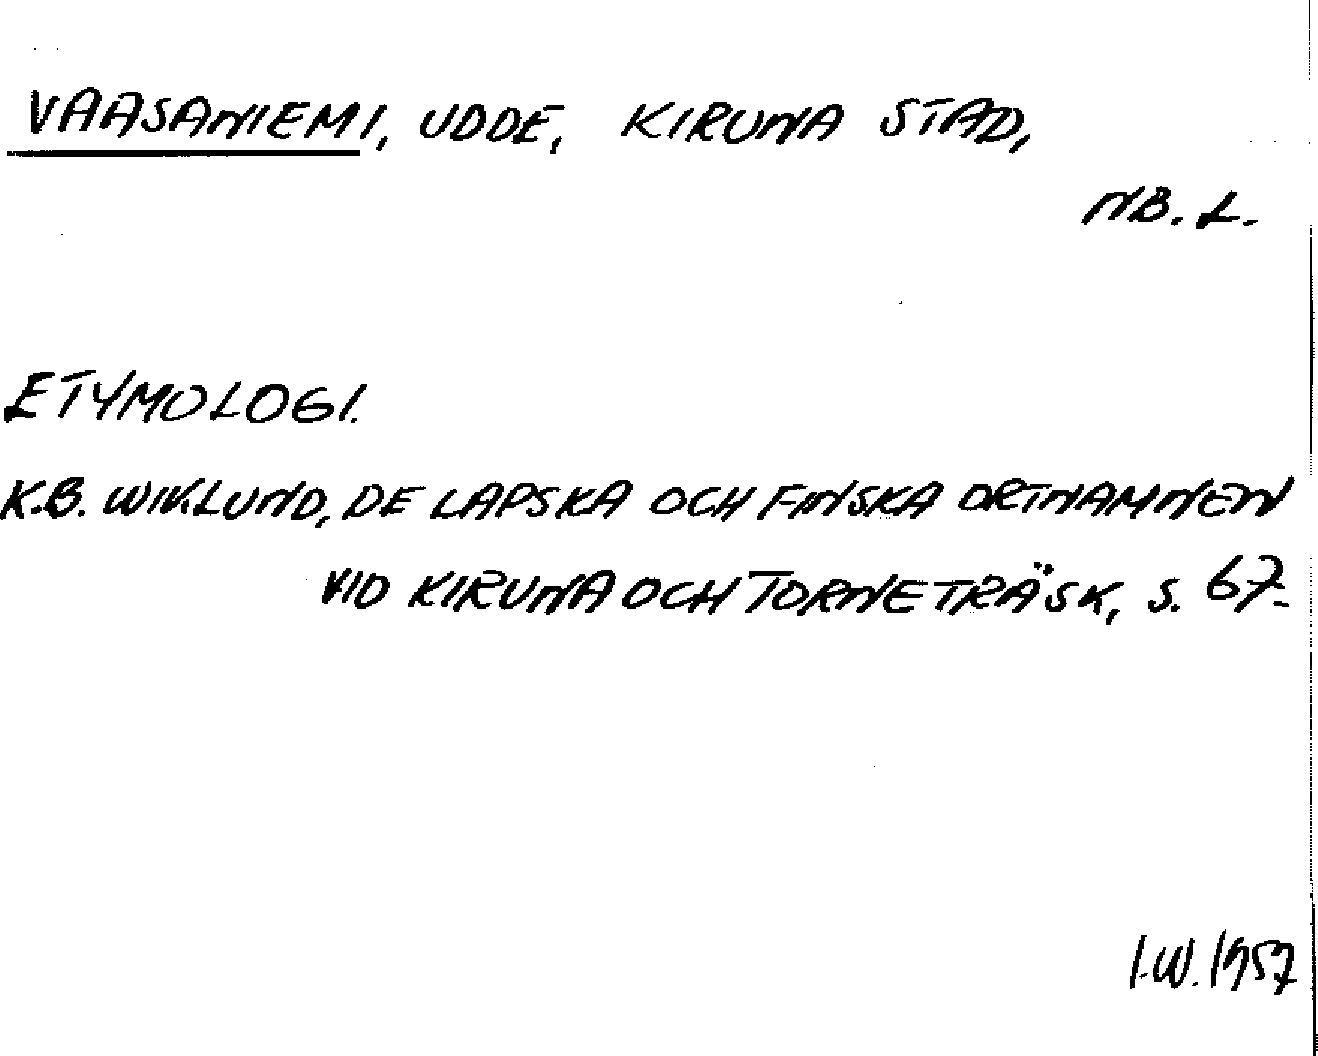 VAASANIEMI, UDDE, KIRUNA STAD,
NB. L.
ETYMOLOGI.
K.B. WIKLUND, DE LAPSKA OCH FINSKA ORTNAMNEN
VID KIRUNA OCH TORNETRÄSK, S. 67.
I.W. 1957